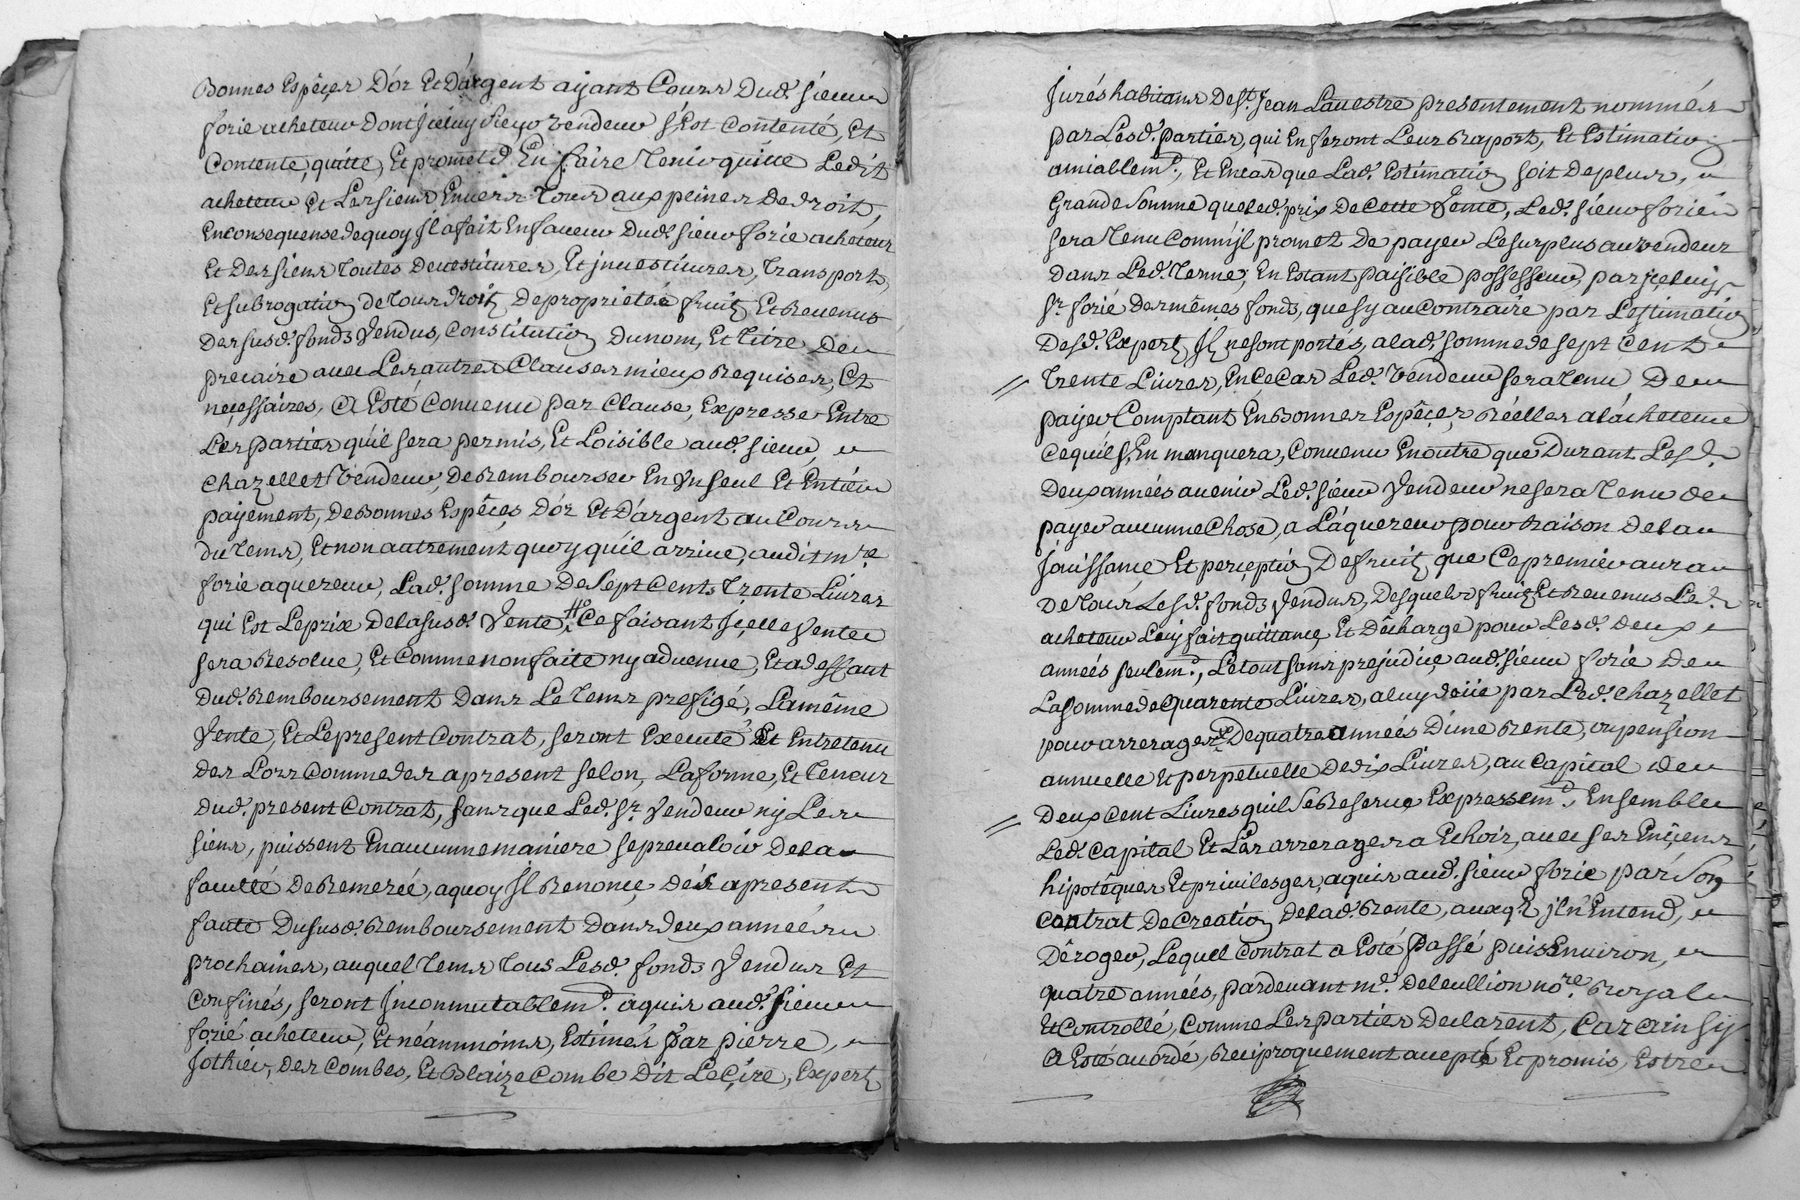 Bonnes Espêçes D'or Et D'argent ayant Cours Dud. sieur
forie acheteur dont Jceluy sieur vendeur s'Est Contenté, Et
Contente, quitte, Et promet d'En faire Tenir quitte Ledit
acheteur Et Les siens Envers Tous aux peines De droit,
En consequense de quoy Jl a fait En faveur Dud. sieur forie acheteur
Et Des siens Toutes Devestitures, Et jnvestitures, Transport,
Et subrogation de Tous droits De proprieté fruits Et Revenus
Des susd. fonds Vendus, Constitution Du nom, Et Titre De
precaire avec Les autres Clauses mieux Requises, Et
neçessaires, A Esté Convenu par Clause, Expresse Entre
Les parties qu'il sera permis, Et Loisible aud. sieur
Chazellet Vendeur, De Rembourser En Vn seul Et Entier
payement, De Bonnes Espêçes D'or Et D'argent au Cours
du Tems, Et non autrement quoy qu'il arrive, audit mre.
forie aquereur, Lad. somme De Sept Cents Trente Livres
qui Est Le prix De la susd. Vente, Ce faisant Jçelle Vente
sera Resolue, Et Comme non faite ny advenue, Et a deffaut
Dud. Remboursement Dans Le Tems prefigé, La même
Vente, Et Le present Contrat, seront Executé Et Entretenu
des Lors Comme des a present selon, La forme, Et Teneur
Dud. present Contrat, sans que Led. Sr. Vendeur ny Les
siens, puissent En aucunne maniere se prevaloir De la
faculté De Remerée, a quoy Jl Renonçe, dés a present
faute Du susd. Remboursement Dans deux années
prochaines, auquel Tems Tous Lesd. fonds Vendus Et
Confinés, seront Jncommutablemt. aquis aud. sieur
forié acheteur, Et néanmoins, Estimés par pierre,
Jothier, des Combes, Et Blaize Combe Dit Le Çire, Experts
Jurés habitans De St. Jean Lavestre presentement nommés
par Lesd. parties, qui En feront Leur Raport, Et Estimation
amiablemt., Et En cas que Lad. Estimation soit De plus,
Grande somme que led. prix De Cette Vente, Led. sieur forié
sera Tenu Comm'jl promet De payer Le surplus au vendeur
dans Led. Terme, En Estant paisible possesseur, par jçeluy
Sr. forié Des mêmes fonds, que sy au Contraire par L'estimation
Desd. Experts Jls ne sont portés, a lad. somme de sept Cent
Trente Livres, En Ce Cas Led. Vendeur sera Tenu De
payer Comptant En Bonnes Espêçes Réelles a l'acheteur
Ce qu'il s'En manquera, Convenu En outre que Durant Lesd.
Deux années a venir Led. sieur Vendeur ne sera Tenu de
payer aucunne Chose, a L'aquereur pour Raison De la
Jouissance Et perçeption De fruits que Ce premier aura
De Tous Lesd. fonds Vendus, Desquels fruits Et Revenus Led.
acheteur Luy fait quittance, Et Décharge pour Lesd. deux
années seulemt., Le tout sans prejudiçe aud. sieur forié De
La somme de quarente Livres, a luy deüe par Led. chazellet
pour arrerages De quatre années D'une Rente, ou pension
annuelle Et perpetuelle De dix Livres, au Capital de
Deux Cent Livres qu'il se Reserve Expressemt., Ensemble
Led. Capital Et Les arrerages a Echoir, avec ses Ençiens
hipotêques Et privileges, aquis aud. sieur forie par Son
Contrat De Creation de lad. Rente, auxqls. jl n'Entend,
Déroger, Lequel Contrat a Esté passé puis Environ,
quatre années, pardevant me. Deleullion nore. Royal
Et Controllé, Comme Les parties Declarent, Car ainsy
A Esté accordé, Reciproquement accepté Et promis, Estre